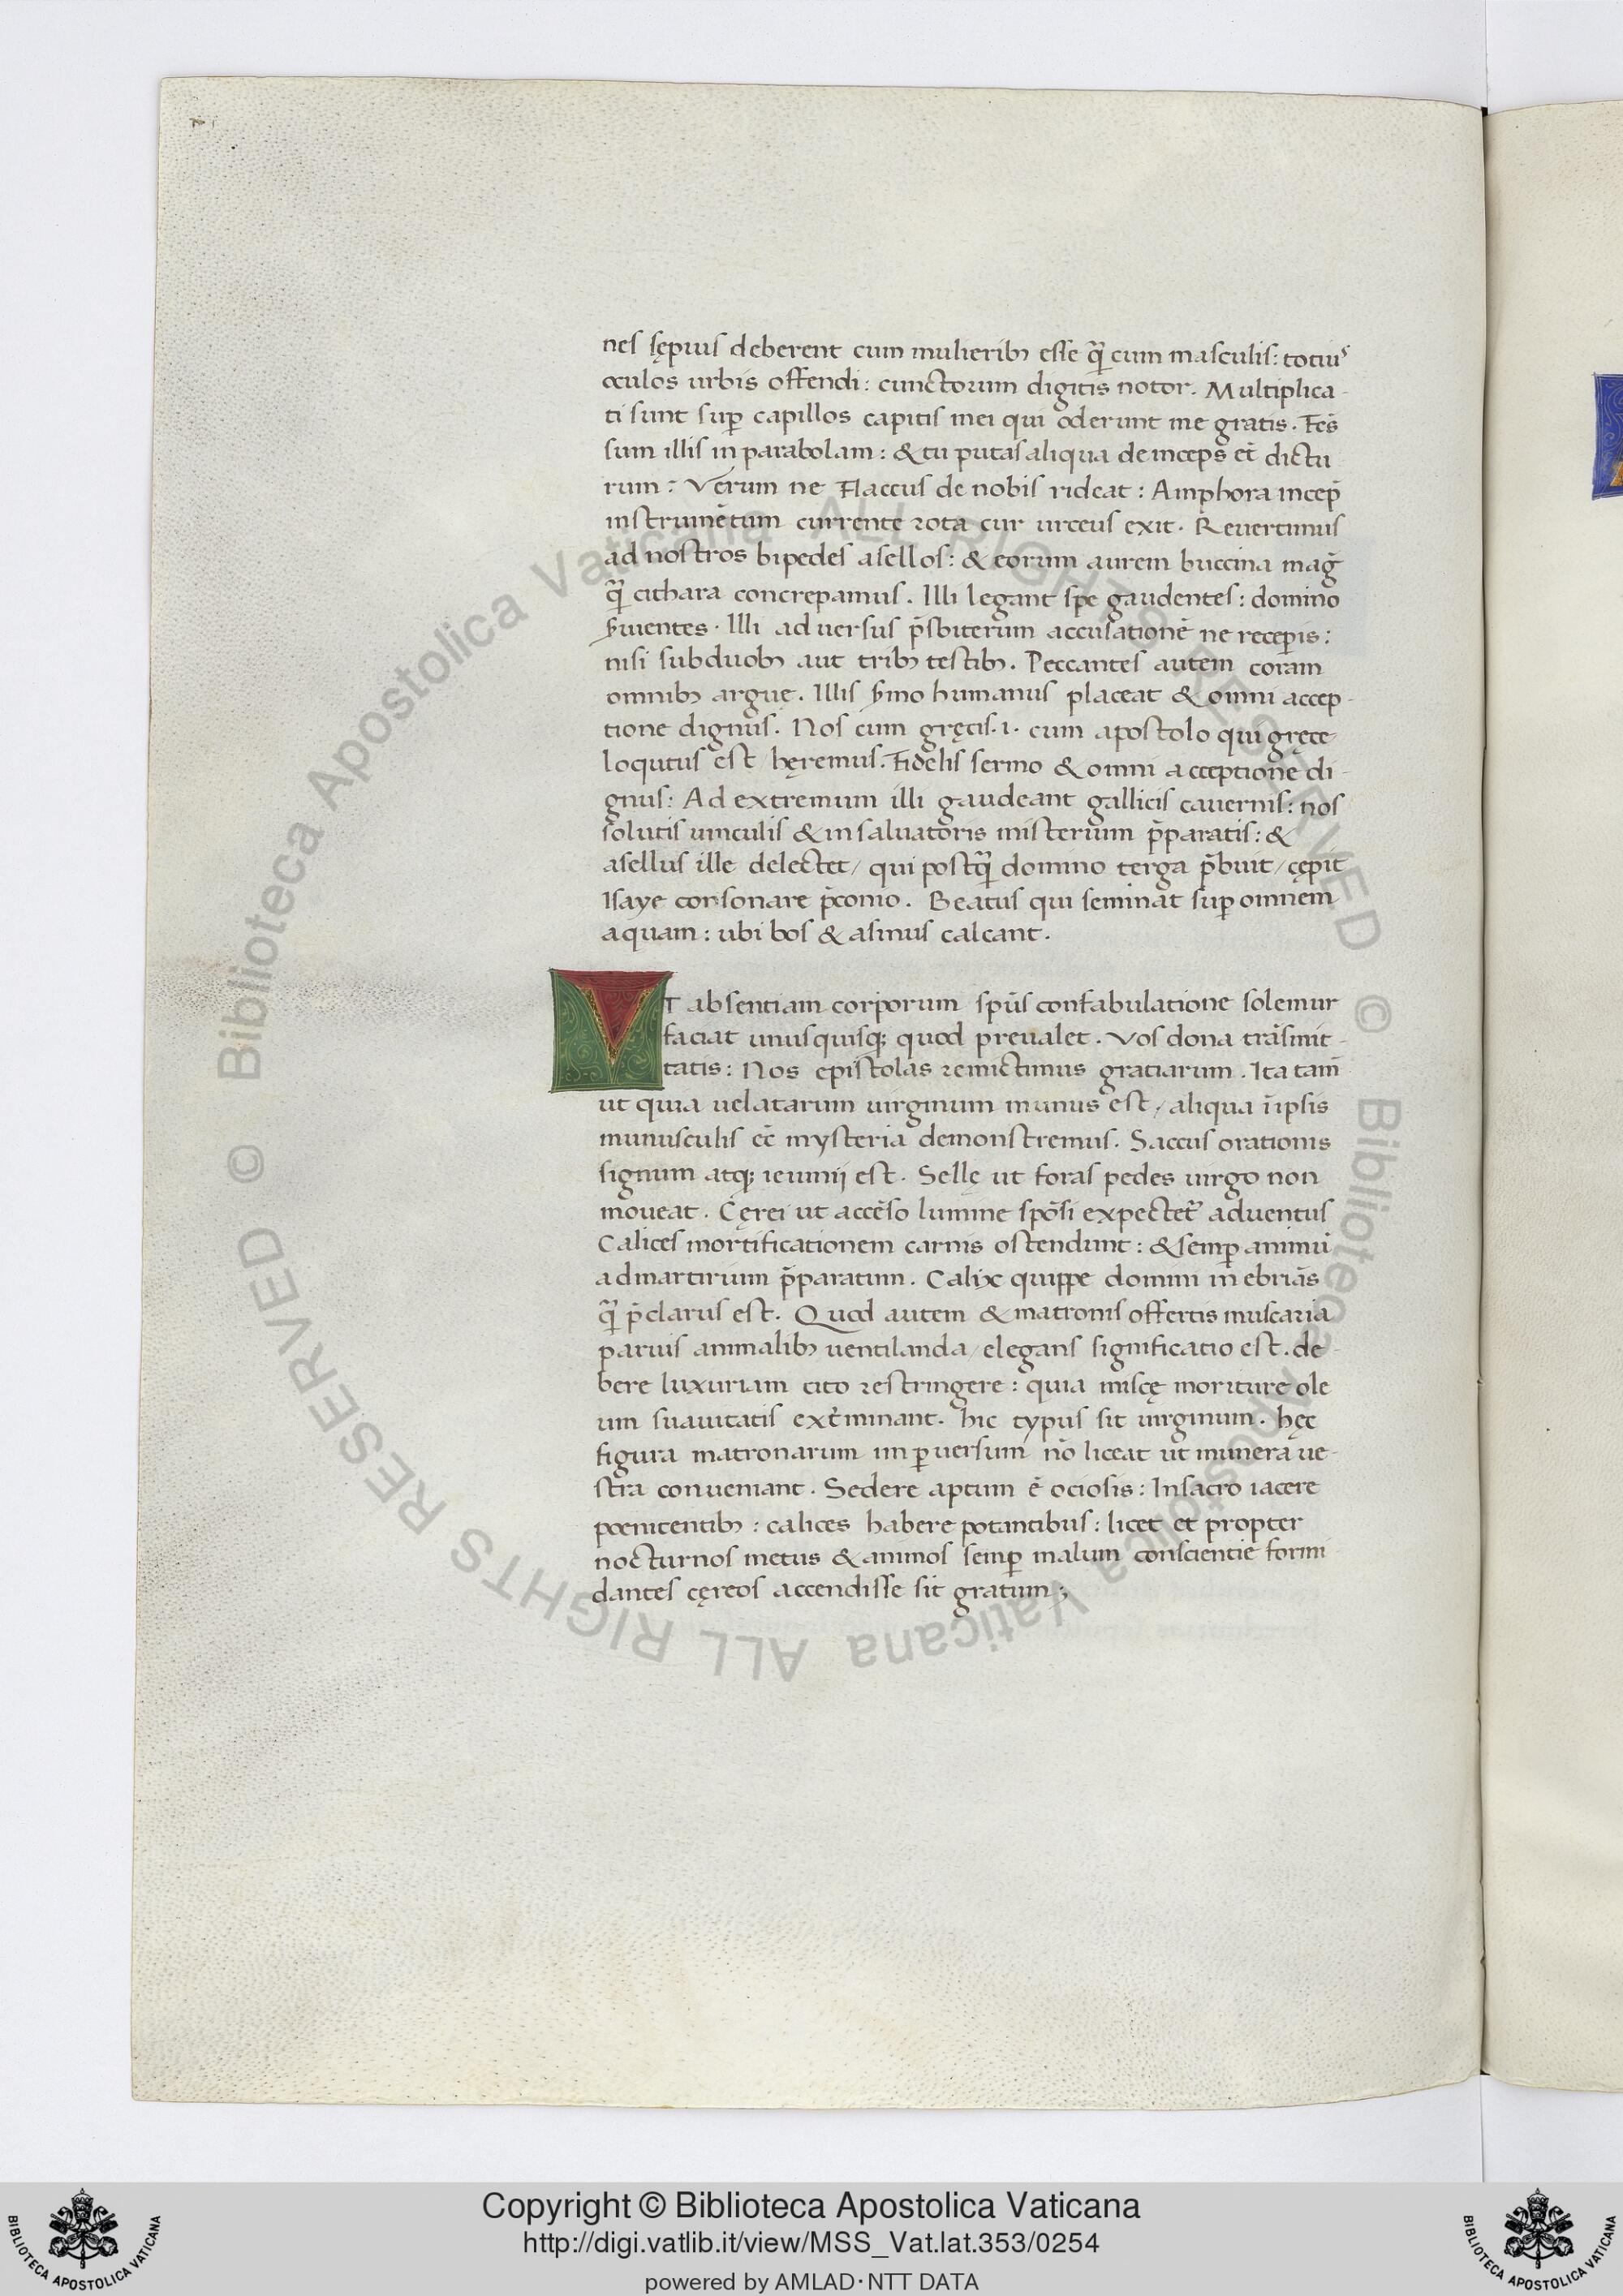 nes sępius deberent cum mulierib; esse q̃ cum masculis: totiuˢ
oculos urbis offendi: cunctorum digitis notor. Multiplica-
ti sunt sup̱ capillos capitis mei qui oderunt me gratis. Fc̄s
sum illis in parabolam: & tu putas aliqua deinceps et̄ dictu
rum: Verum ne Flaccus de nobis rideat: Amphora incep̄
instrumētum currente rota cur urceus exit. Revertimus
ad nostros bipedes asellos: & eorum aurem buccina mag̃
q̃ cithara concrepamus. Illi legant spe gaudentes: domino
s̃uientes. Illi adversus p̄sbiterum accusationē ne recep̱is:
nisi sub duob; aut trib; testib;. Peccantes autem coram
omnib; argue. Illis s̃mo humanus placeat & omni accep-
tione dignus. Nos cum gręcis .i. cum apostolo qui gręce
loqutus est hęremus. Fidelis sermo & omni acceptione di-
gnus: Ad extremum illi gaudeant gallicis cavernis: nos
solutis vinculis & in salvatoris misterium p̄paratis: &
asellus ille delectet / qui postq̃ domino terga p̄buit / cępit
Isaye consonare p̄conio. Beatus qui seminat sup̱ omnem
aquam: ubi bos & asinus calcant.
VT absentiam corporum sp̄us confabulatione solemur
faciat unusquisq; quod prevalet. Vos dona trāsmit-
tatis: Nos epistolas remictimus gratiarum. Ita tam̄
ut quia velatarum virginum munus est / aliqua ī ipsis
munusculis eē mysteria demonstremus. Saccus orationis
signum atq; ieiunij est. Sellę ut foras pedes virgo non
moveat. Cęrei ut accēso lumine spōsi expectet᷑ adventus
Calices mortificationem carnis ostendunt: & semp̱ animū
ad martirium p̄paratum. Calix quippe domini inebriās
q̃ p̄clarus est. Quod autem & matronis offertis muscaria
parvis animalib; ventilanda / elegans significatio est. de-
bere luxuriam cito restringere: quia muscę moriture ole
um suavitatis ext̄minant. hic typus sit virginum. hęc
figura matronarum in p̱versum nō liceat ut munera ve-
stra conveniant. Sedere aptum ē ociosis: In sacro iacere
poenitentib;: calices habere potantibus: licet et propter
nocturnos metus & animos semp̱ malum conscientie formi
dantes cęreos accendisse sit gratum;
Copyright © Biblioteca Apostolica Vaticana
http://digi.vatlib.it/view/MSS_Vat.lat.353/0254
powered by AMLAD·NTT DATA
BIBLIOTECA APOSTOLICA VATICANA
BIBLIOTECA APOSTOLICA VATICANA
© Biblioteca Apostolica Vaticana ALL RIGHTS RESERVED
© Biblioteca Apostolica Vaticana ALL RIGHTS RESERVED